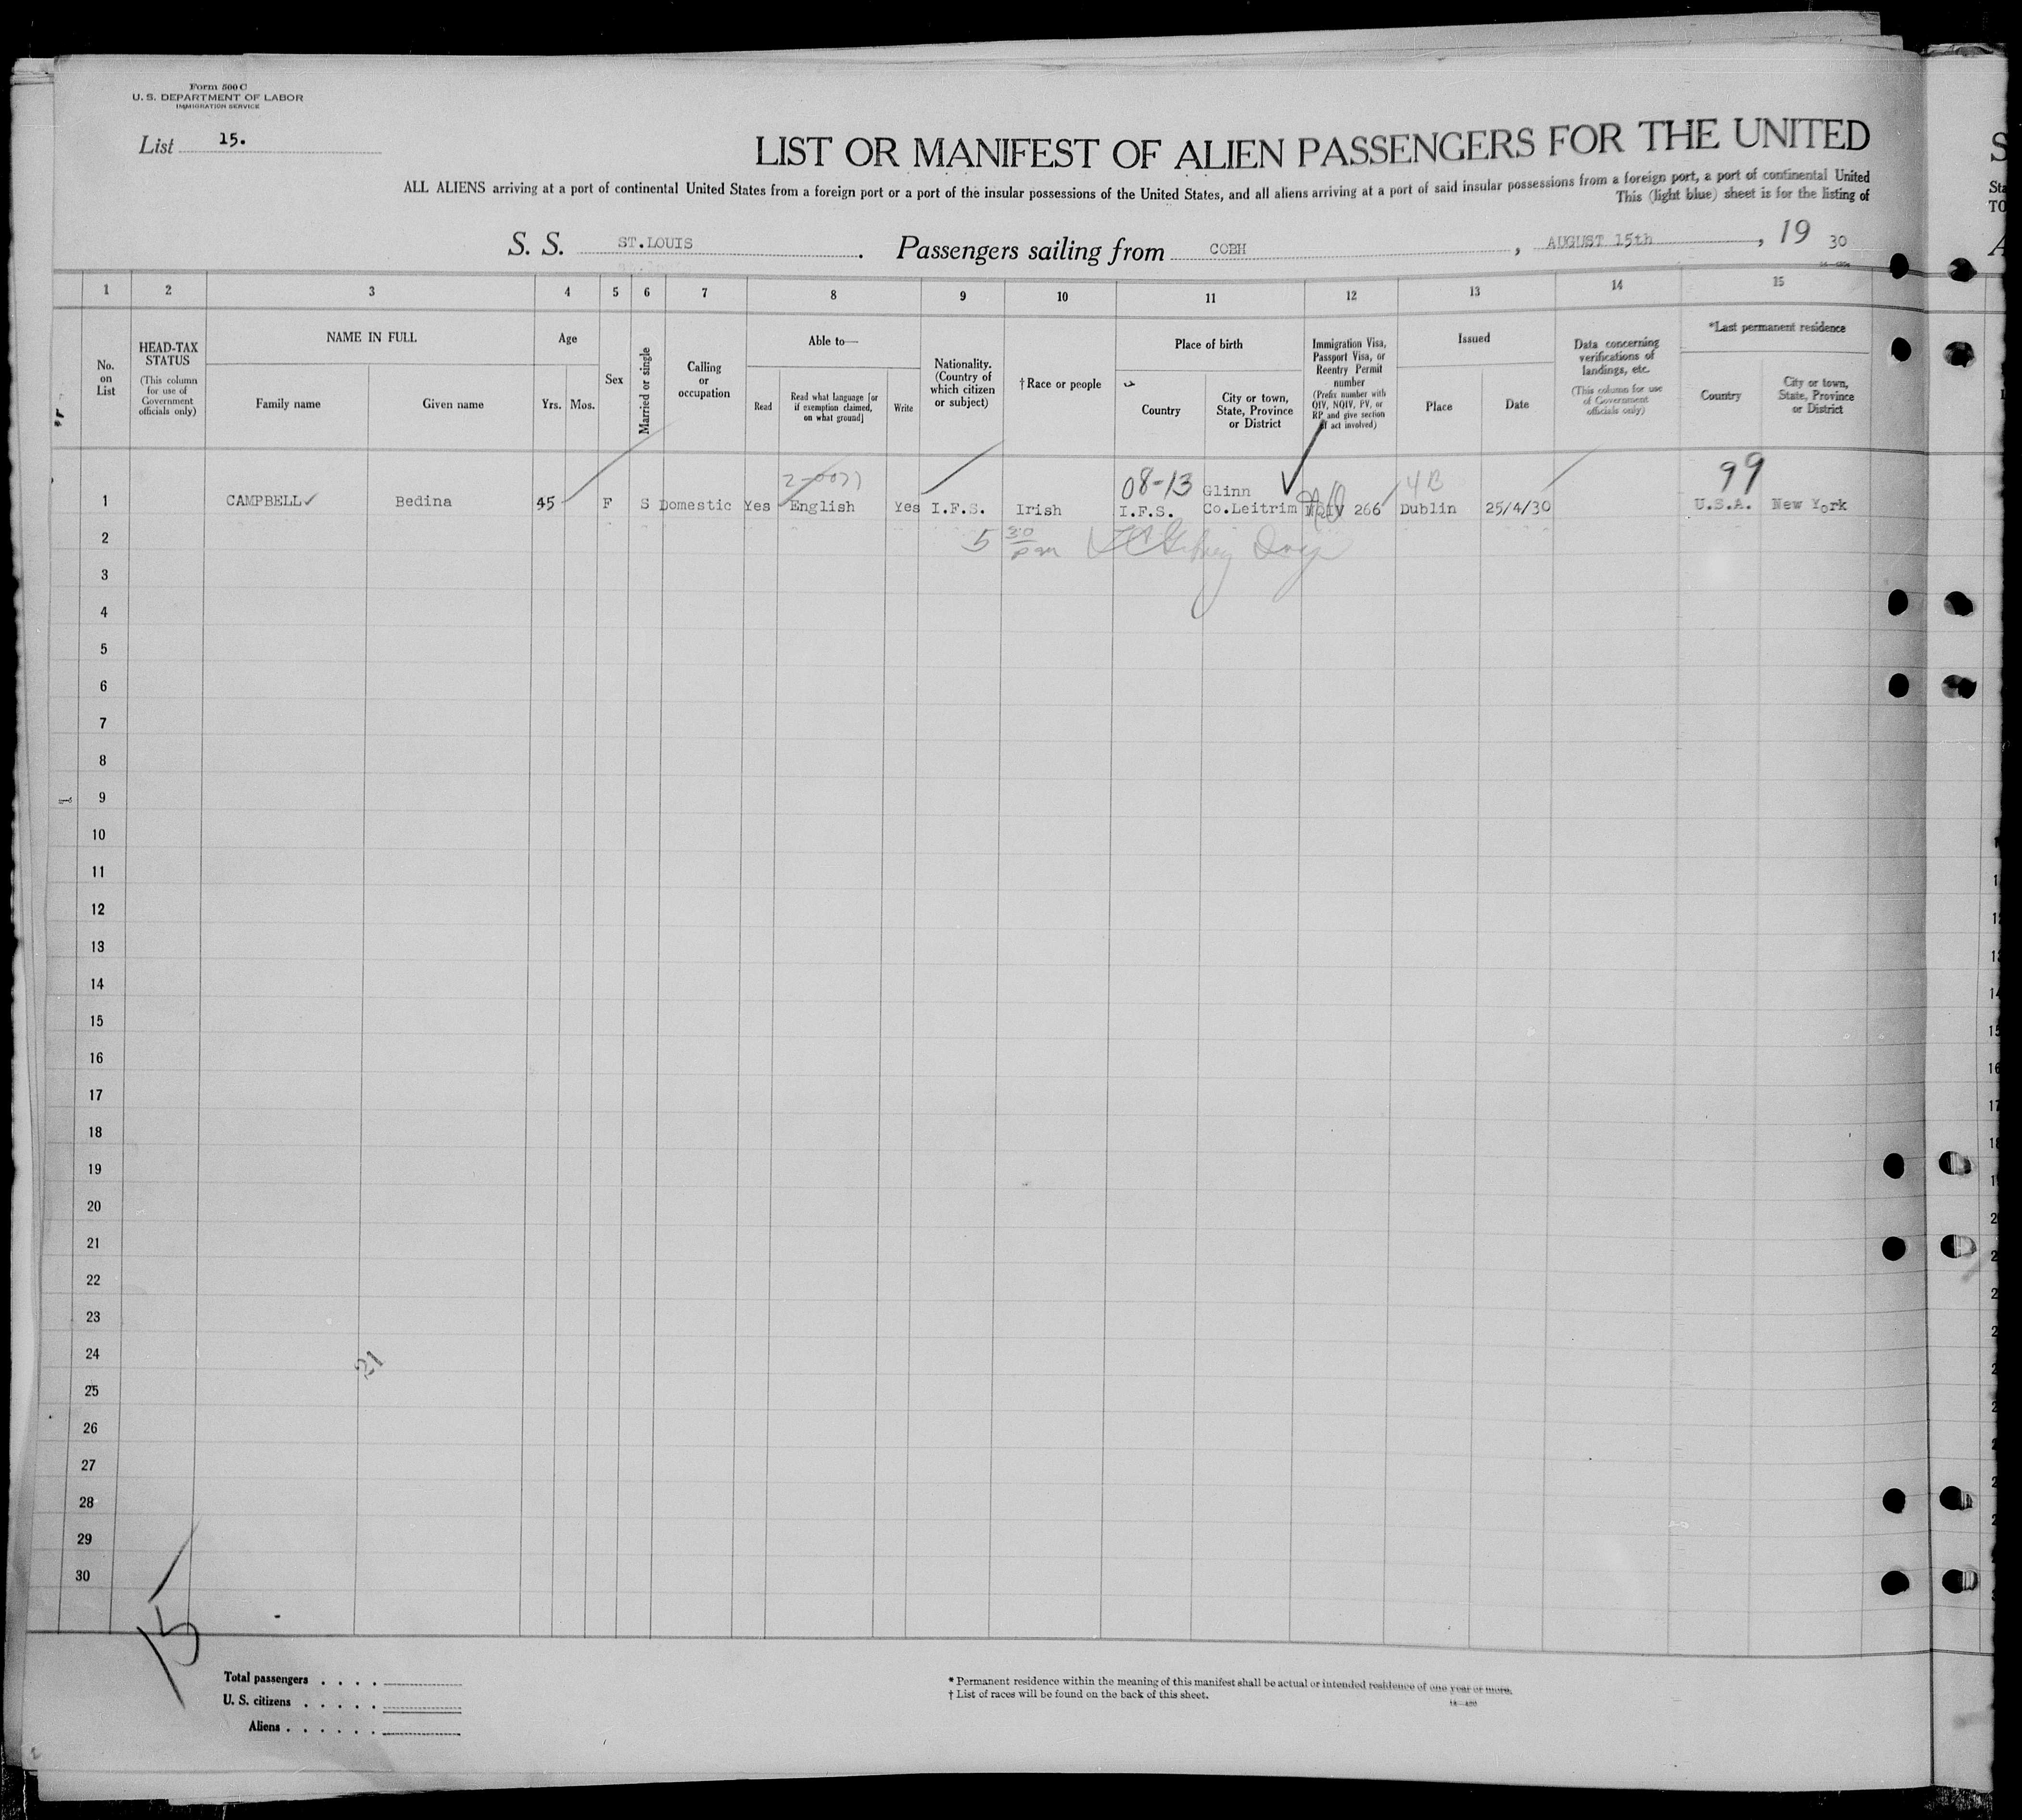 Form 500 C
U. S. DEPARTMENT OF LABOR
IMMIGRATION SERVICE
List 15.
LIST OR MANIFEST OF ALIEN PASSENGERS FOR THE UNITED
ALL ALIENS arriving at a port of continental United States from a foreign port or a port of the insular possessions of the United States, and all aliens arriving at a port of said insular possessions from a foreign port, a port of continental United
This (light blue) sheet is for the listing of
S. S. ST.LOUIS. Passengers sailing from COBH, AUGUST 15th, 19 30
1 2 3 4 5 6 7 8 9 10 11 12 13 14 15
No. on List
HEAD-TAX STATUS
(This column for use of Government officials only)
NAME IN FULL
Family name
Given name
Age
Yrs. Mos.
Sex
Married or single
Calling or occupation
Able to—
Read
Read what language [or if exemption claimed, on what ground]
Write
Nationality. (Country of which citizen or subject)
†Race or people
Place of birth
Country
City or town, State, Province or District
Immigration Visa, Passport Visa, or Reentry Permit number
(Prefix number with QIV, NQIV, PV, or RP and give section of act involved)
Issued
Place
Date
Data concerning verifications of landings, etc.
(This column for use of Government officials only)
*Last permanent residence
Country
City or town, State, Province or District
08-13 Glinn 4B 99
1 CAMPBELL✓ Bedina 45 F S Domestic Yes English Yes I.F.S. Irish I.F.S. Co.Leitrim 266 Dublin 25/4/30 U.S.A. New York
2 5 30 pm
3
4
5
6
7
8
9
10
11
12
13
14
15
16
17
18
19
20
21
22
23
24
21
25
26
27
28
29
30
15
Total passengers . . . .
U. S. citizens . . . . .
Aliens . . . . . .
* Permanent residence within the meaning of this manifest shall be actual or intended residence of one year or more.
† List of races will be found on the back of this sheet.